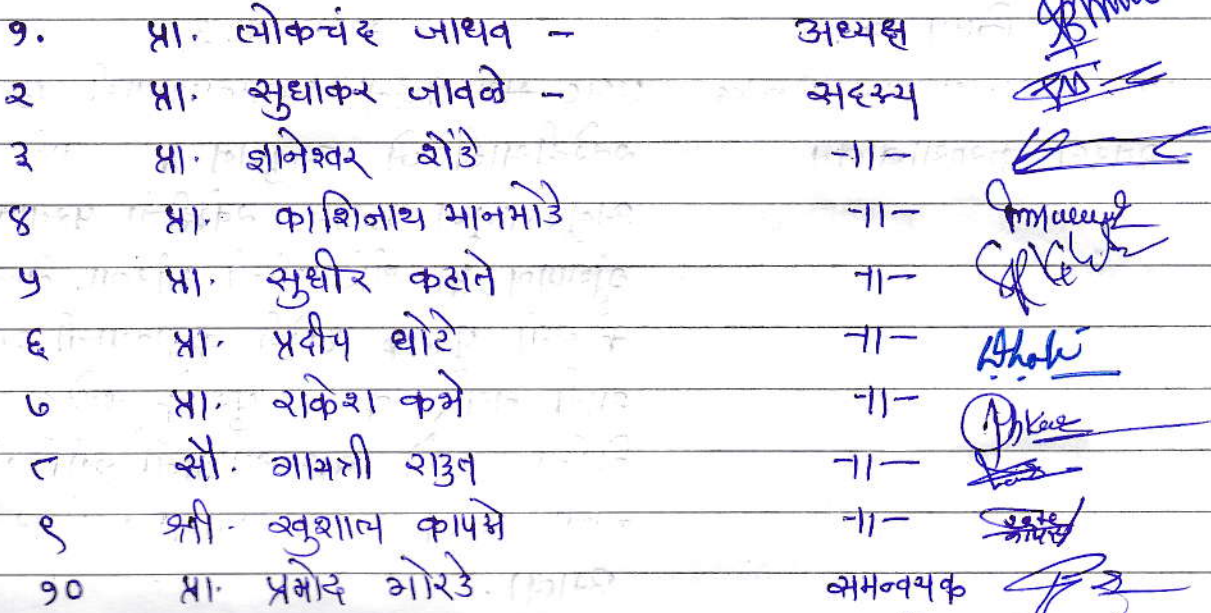 १. प्रा. त्योकचंद जाधव - अध्यक्ष
२ प्रा. सुधाकर जावळे - सदस्य
३ प्रा. ज्ञानेश्वर शेंडे -॥-
४ प्रा. काशिनाथ मानमोडे -॥-
५ प्रा. सुधीर कहाते -॥-
६ प्रा. प्रदीप धोटे -॥-
७ प्रा. राकेश कभे -॥-
८ सौ. गायत्री राऊत -॥-
९ श्री. खुशाल कापसे -॥-
१० प्रा. प्रमोद गोरडे समन्वयक